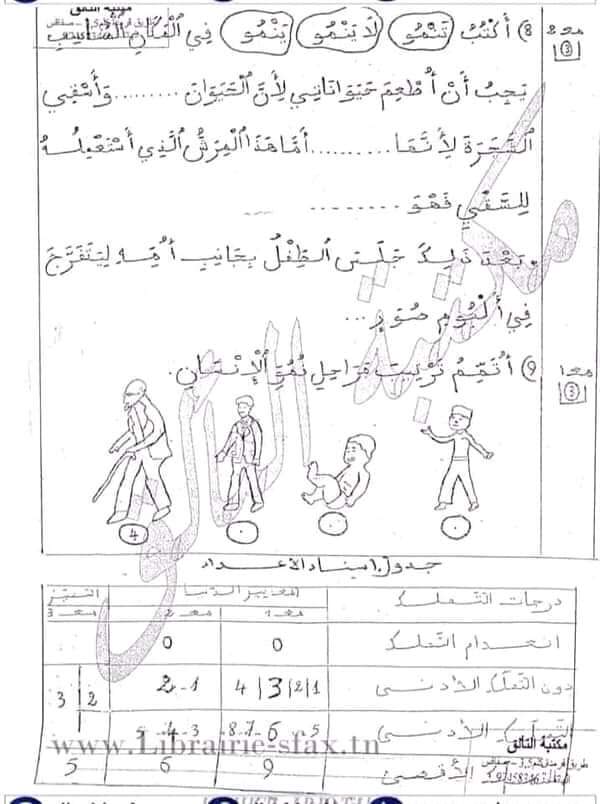 مكتبة التألق
8) أَكْتُبُ تَنْمُو لَا يَنْمُو يَنْمُو فِي الْمَكَانِ الْمُنَاسِبِ
مع 2
3
يَجِبُ أَنْ أُطْعِمَ حَيَوَانَاتِي لِأَنَّ الْحَيَوَانَ ......... وَأَسْقِي
الشَّجَرَةَ لِأَنَّهَا .......... أَمَّا هَذَا الْمِرَشُّ الَّذِي أَسْتَعْمِلُهُ
لِلسَّقْيِ فَهُوَ .........
. بَعْدَ ذَلِكَ جَلَسَ الطِّفْلُ بِجَانِبِ أُمِّهِ لِيَتَفَرَّجَ
فِي أَلْبُومِ صُوَرٍ ...
9) أُتَمِّمُ تَرْتِيبَ مَرَاحِلِ نُمُوِّ الْإِنْسَانِ.
مع 1
3
4
جدول إسناد الأعداد
درجات التملك معايير الحد الأدنى التميز
مع 1 مع 2 مع 3
انعدام التملك 0 0
دون التملك الأدنى 1|2|3|4 1-2 2 3
التملك الأدنى 5 6-7-8 3-4-5
الأقصى 9 6 5
www.Librairie-sfax.tn
مكتبة التألق